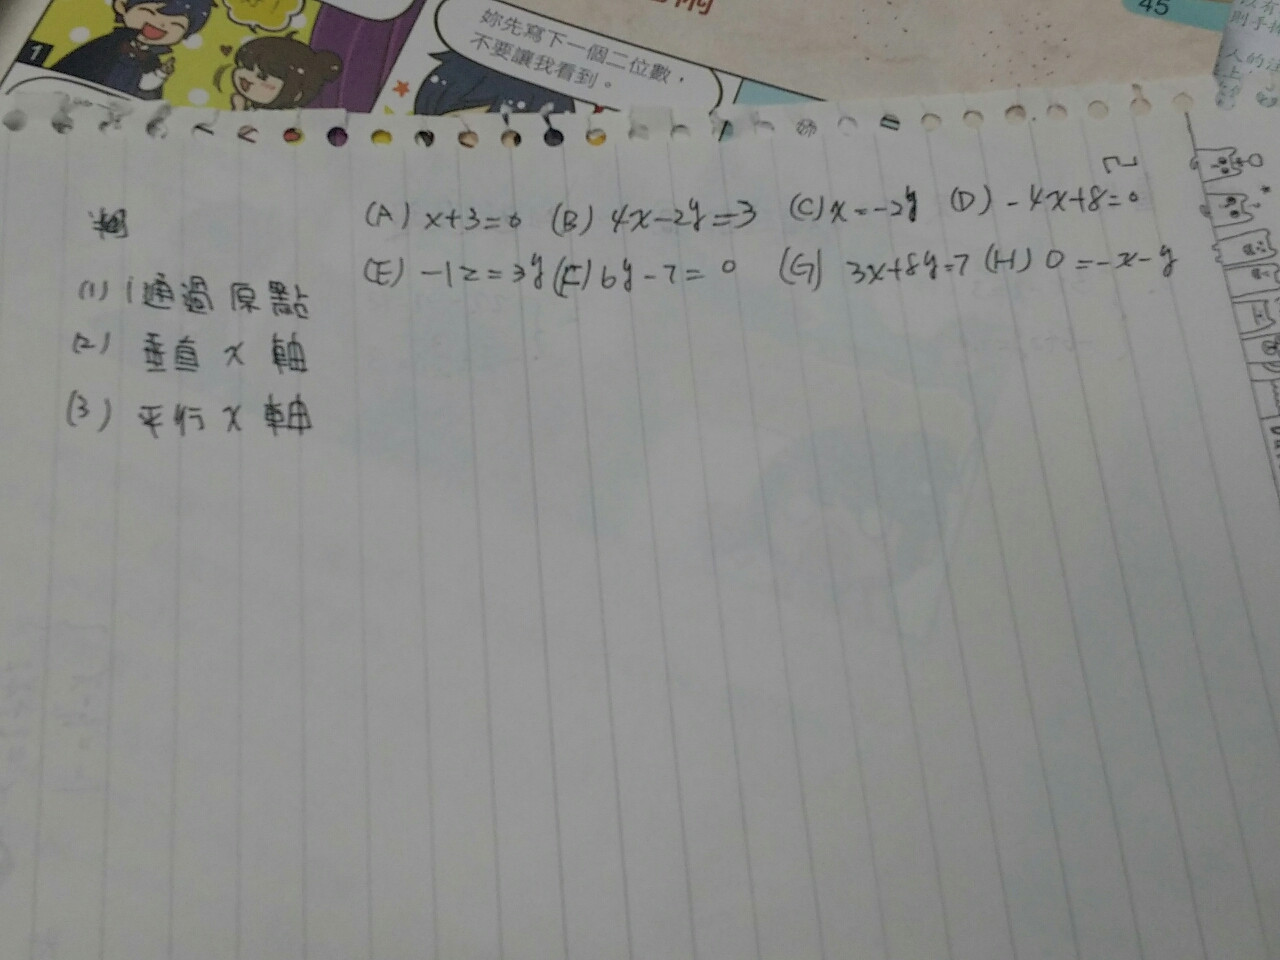 45
1
妳先寫下一個二位數，
不要讓我看到。
(A) x+3=0 (B) 4x-2y=3 (C) x=-2y (D) -4x+8=0
(E) -12=3y (F) 6y-7=0 (G) 3x+8y=7 (H) 0=-x-y
(1) 通過原點
(2) 垂直 x 軸
(3) 平行 x 軸